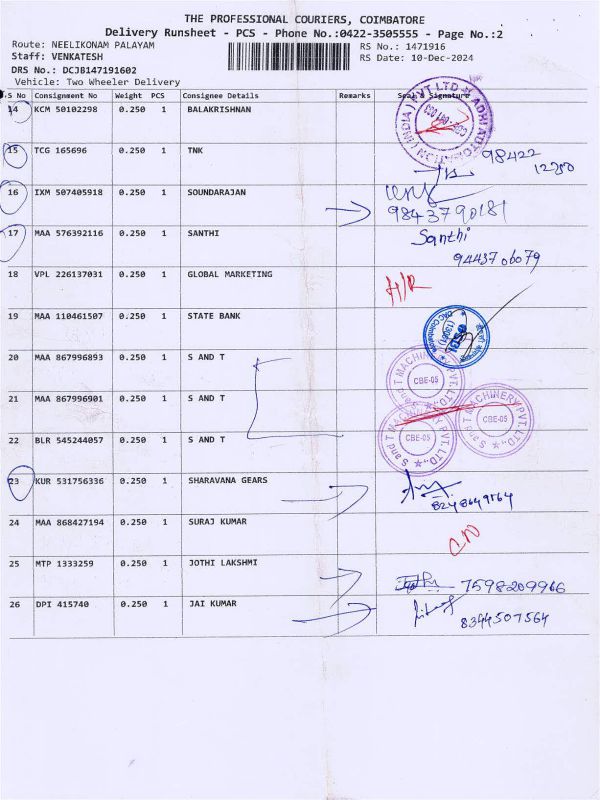 THE PROFESSIONAL COURIERS, COIMBATORE
Delivery Runsheet - PCS - Phone No.:0422-3505555 - Page No.:2
Route: NEELIKONAM PALAYAM RS No.: 1471916
Staff: VENKATESH RS Date: 10-Dec-2024
DRS No.: DCJB147191602
Vehicle: Two Wheeler Delivery
S No Consignment No Weight PCS Consignee Details Remarks Seal & Signature
14 KCM 50102298 0.250 1 BALAKRISHNAN
15 TCG 165696 0.250 1 TNK 98422
12250
16 IXM 507405918 0.250 1 SOUNDARAJAN
9843790181
17 MAA 576392116 0.250 1 SANTHI Santhi
9443706079
18 VPL 226137031 0.250 1 GLOBAL MARKETING H/R
19 MAA 110461507 0.250 1 STATE BANK
20 MAA 867996893 0.250 1 S AND T
21 MAA 867996901 0.250 1 S AND T
22 BLR 545244057 0.250 1 S AND T
S and T MACHINERY PVT. LTD., CBE-05
S and T MACHINERY PVT. LTD., CBE-05
S and T MACHINERY PVT. LTD., CBE-05
23 KUR 531756336 0.250 1 SHARAVANA GEARS
8248649564
24 MAA 868427194 0.250 1 SURAJ KUMAR
25 MTP 1333259 0.250 1 JOTHI LAKSHMI 7598209966
26 DPI 415740 0.250 1 JAI KUMAR
8344507564